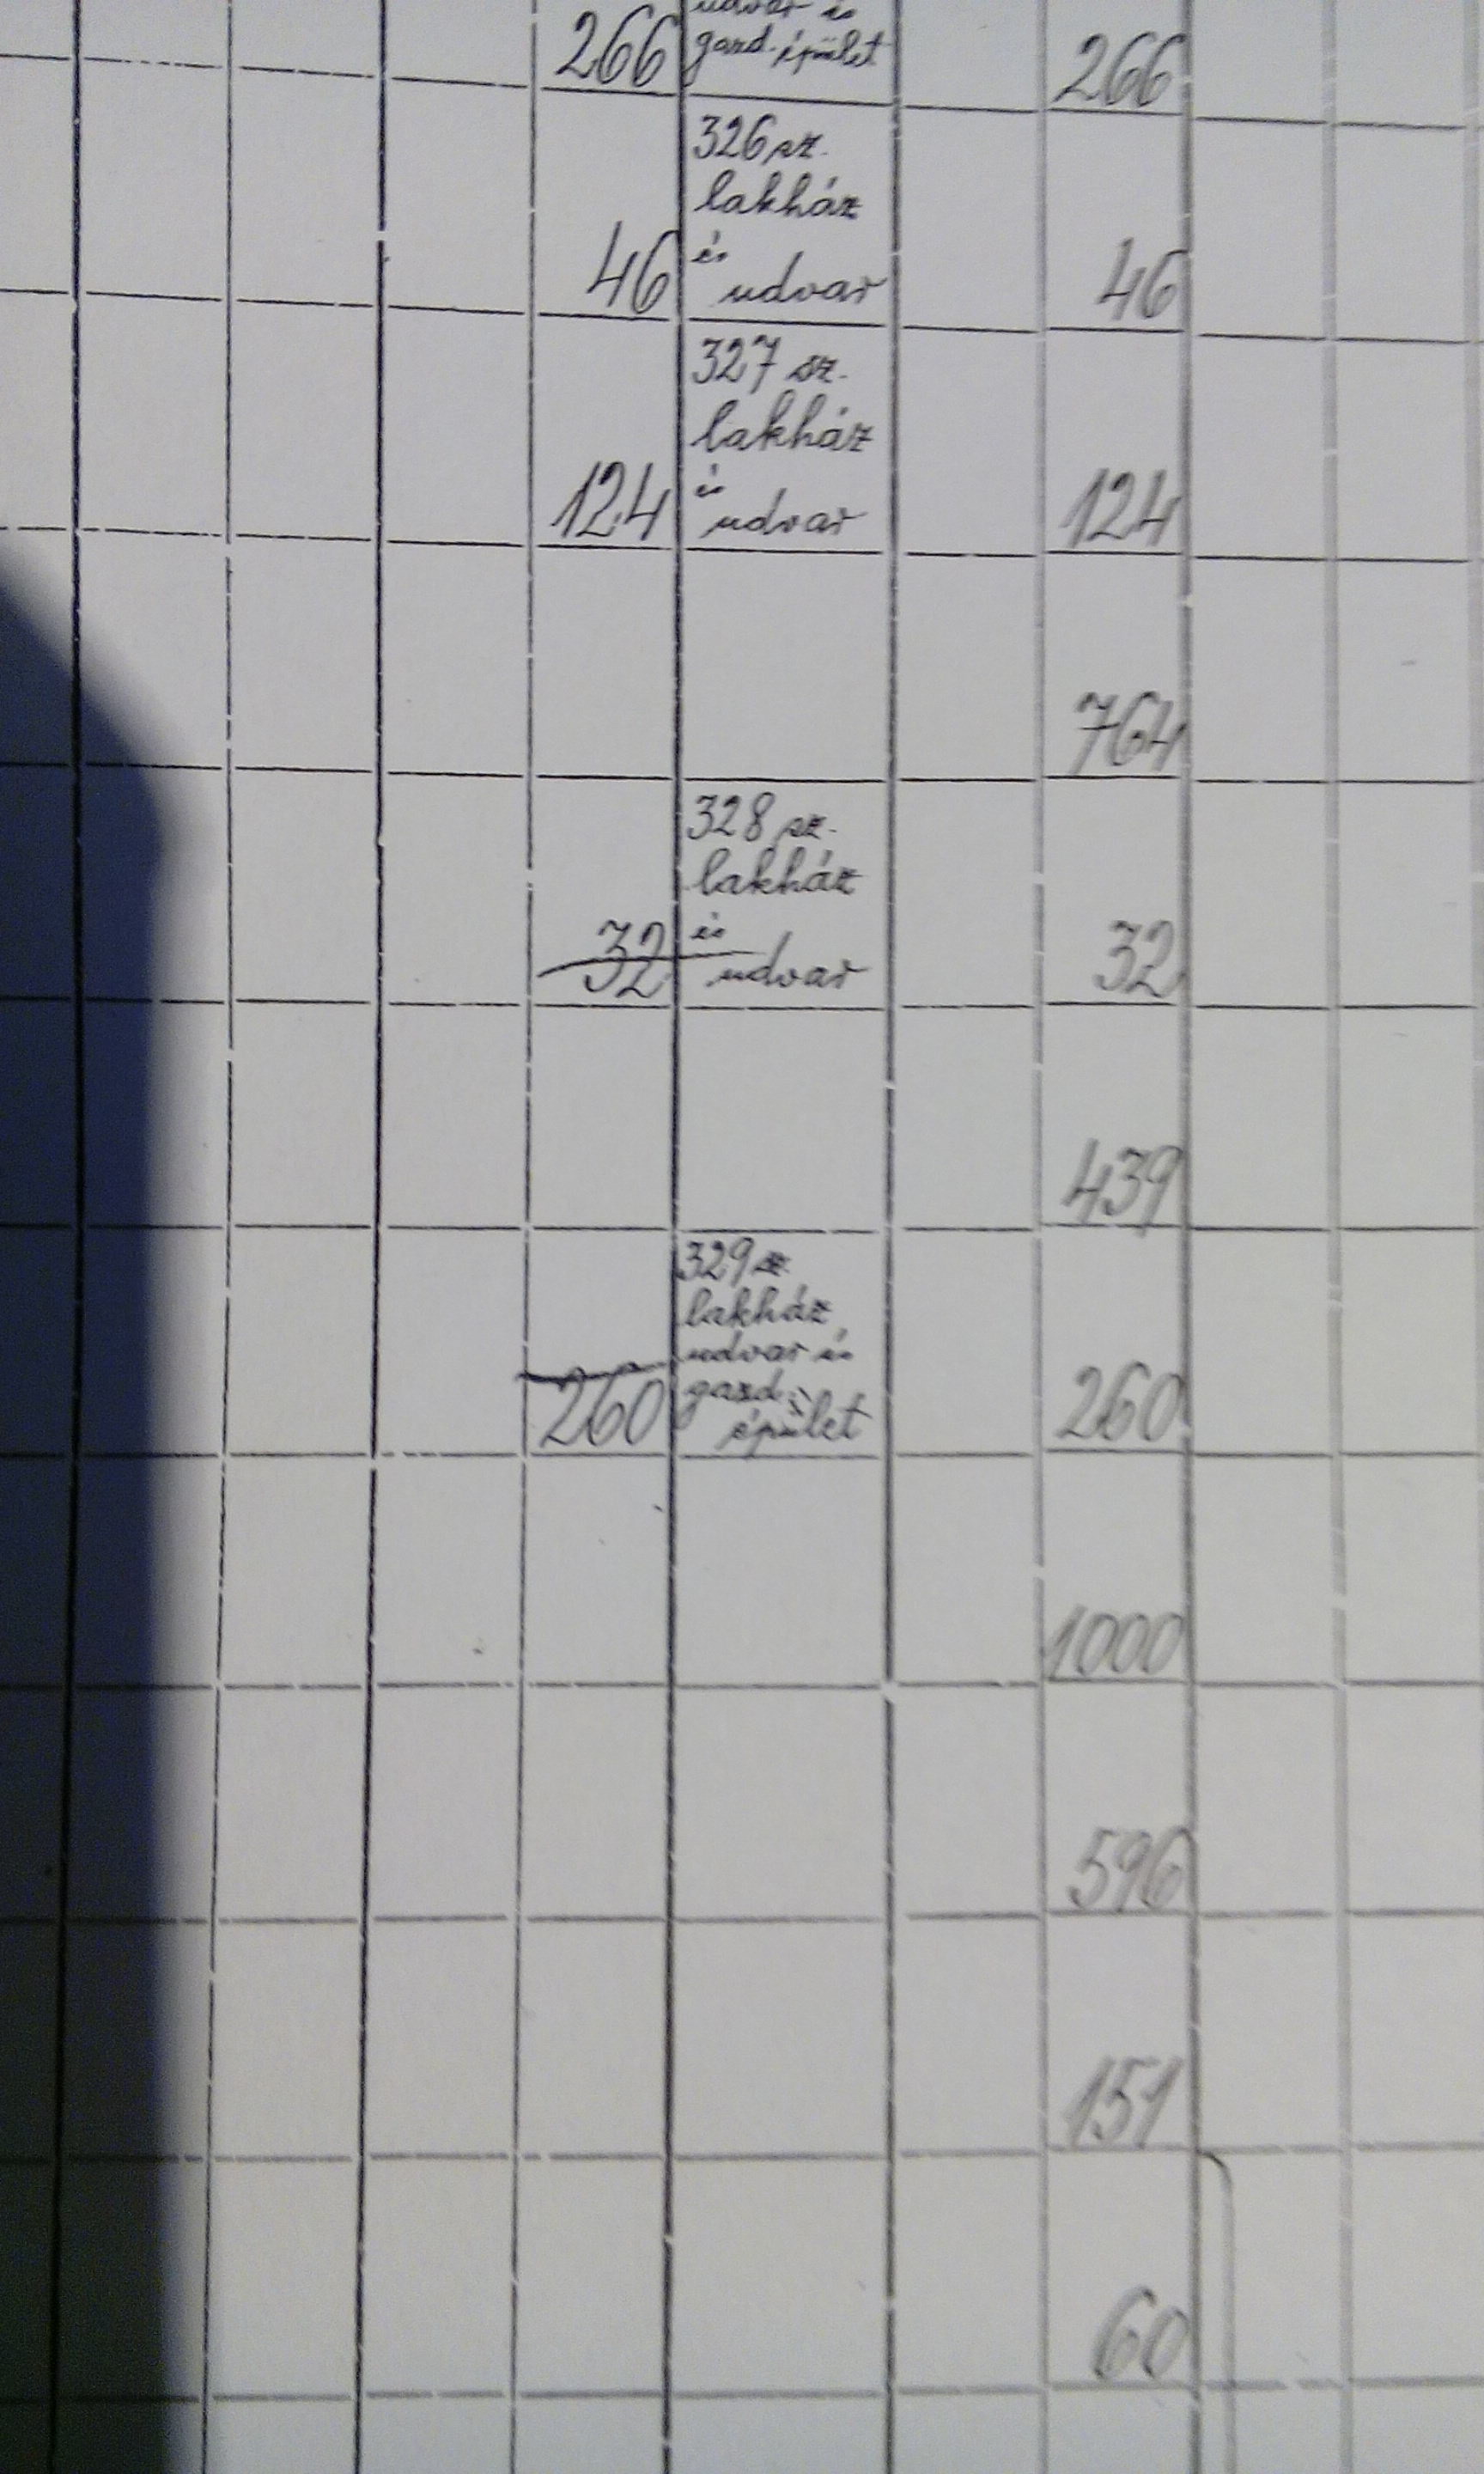 udvar és
266 gazd. épület 266
326 sz.
lakház
és
46 udvar 46
327 sz.
lakház
és
124 udvar 124
764
328 sz.
lakház
és
32 udvar 32
439
329 sz.
lakház
udvar és
gazd.
260 épület 260
1000
596
151
60